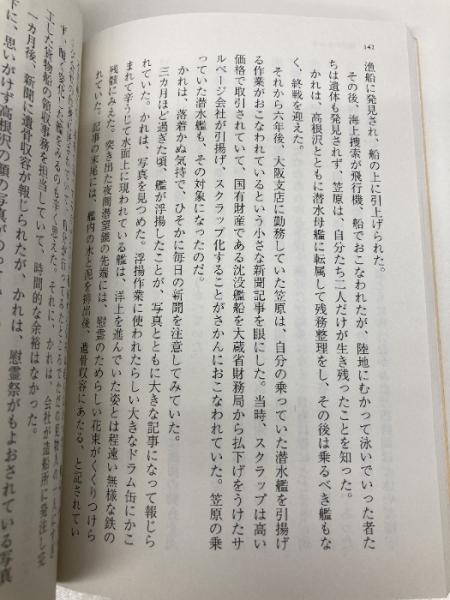 142
漁船に発見され、船の上に引上げられた。
その後、海上捜索が飛行機、船でおこなわれたが、陸地にむかって泳いでいった者た
ちは遺体も発見されず、笠原は、自分たち二人だけが生き残ったことを知った。
かれは、高根沢とともに潜水母艦に転属して残務整理をし、その後は乗るべき艦もな
く、終戦を迎えた。
それから六年後、大阪支店に勤務していた笠原は、自分の乗っていた潜水艦を引揚げ
る作業がおこなわれているという小さな新聞記事を眼にした。当時、スクラップは高い
価格で取引されていて、国有財産である沈没艦船を大蔵省財務局から払下げをうけたサ
ルベージ会社が引揚げ、スクラップ化することがさかんにおこなわれていた。笠原の乗
っていた潜水艦も、その対象になったのだ。
かれは、落着かぬ気持で、ひそかに毎日の新聞を注意してみていた。
三カ月ほど過ぎた頃、艦が浮揚したことが、写真とともに大きな記事になって報じら
れていた。かれは、写真を見つめた。浮揚作業に使われたらしい大きなドラム缶にかこ
まれて辛うじて水面上に現われている艦は、洋上を進んでいた姿とは程遠い無様な鉄の
残骸にみえた。突き出た夜間潜望鏡の先端には、慰霊のためらしい花束がくくりつけら
れていた。記事の末尾には、艦内の水と泥を排出後、遺骨収容にあたる、と記されてい
と思えた。それに、かれは、会社が造船所に発注し完
工した貨物船の領収事務を担当していて、時間的な余裕はなかった。
一カ月後、新聞に遺骨収容が報じられたが、かれは、慰霊祭がもよおされている写真
下に、思いがけず高根沢の顔の写真がのって